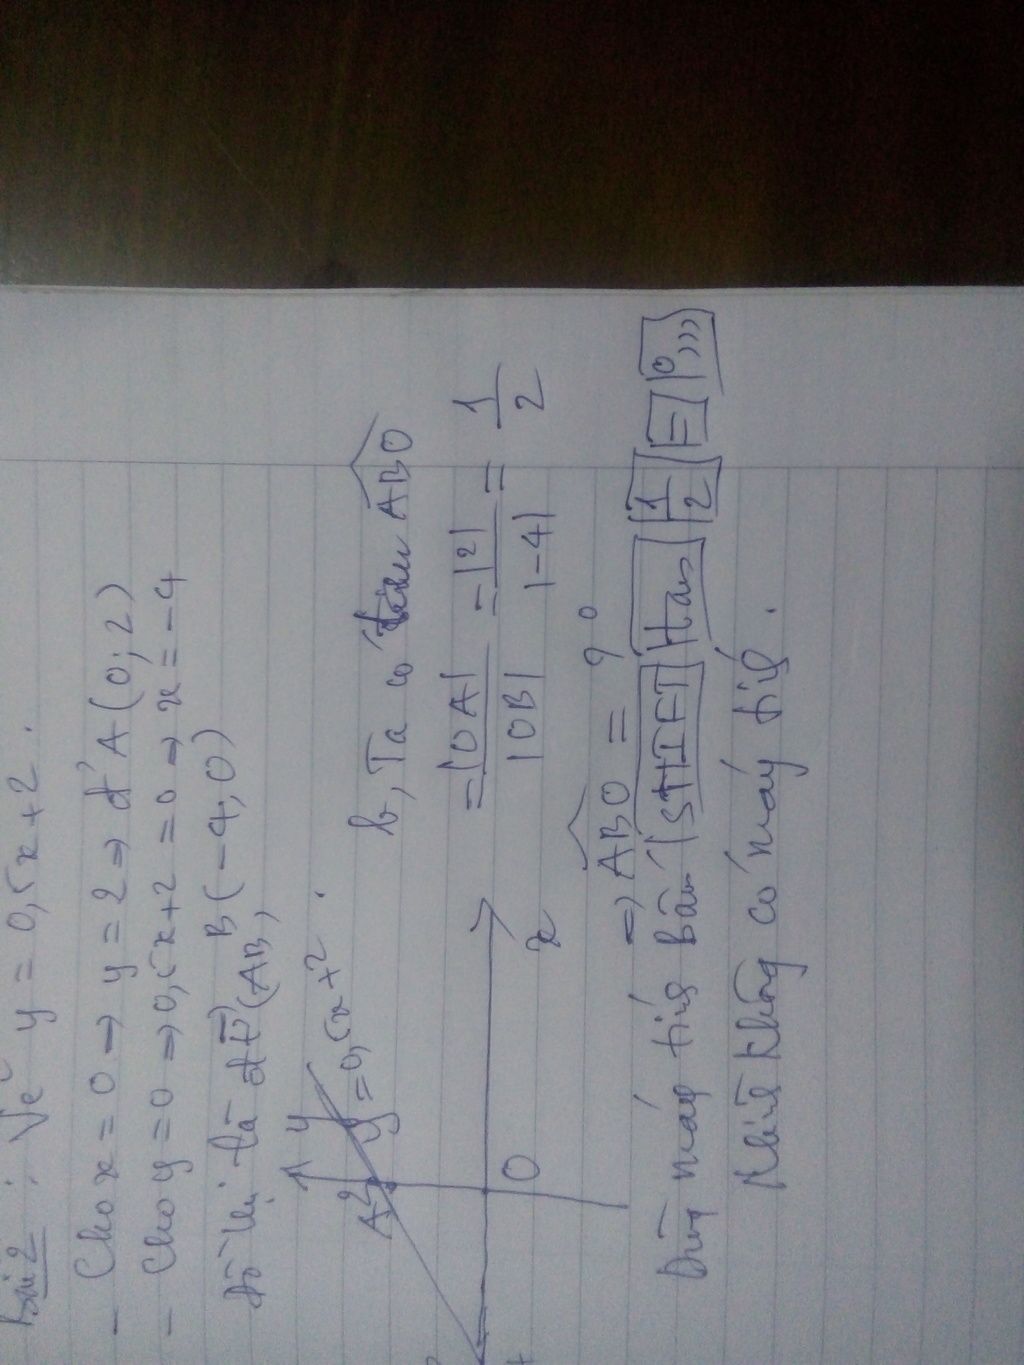 Bài 2 : Vẽ y = 0,5x + 2 .
- Cho x = 0 → y = 2 ⇒ đ' A (0 ; 2)
- Cho y = 0 ⇒ 0,5x + 2 = 0 → x = -4
B (-4, 0)
Đồ thị là đt (AB,
y
A 2
y = 0,5x + 2 .
O
x
b, Ta có tan ABO
= |OA| / |OB| = |2| / |-4| = 1/2
⇒ ABO = ? °
Dùng máy tính Bấm SHIFT tan 1/2 = 0,,,
Mình không có máy tính .